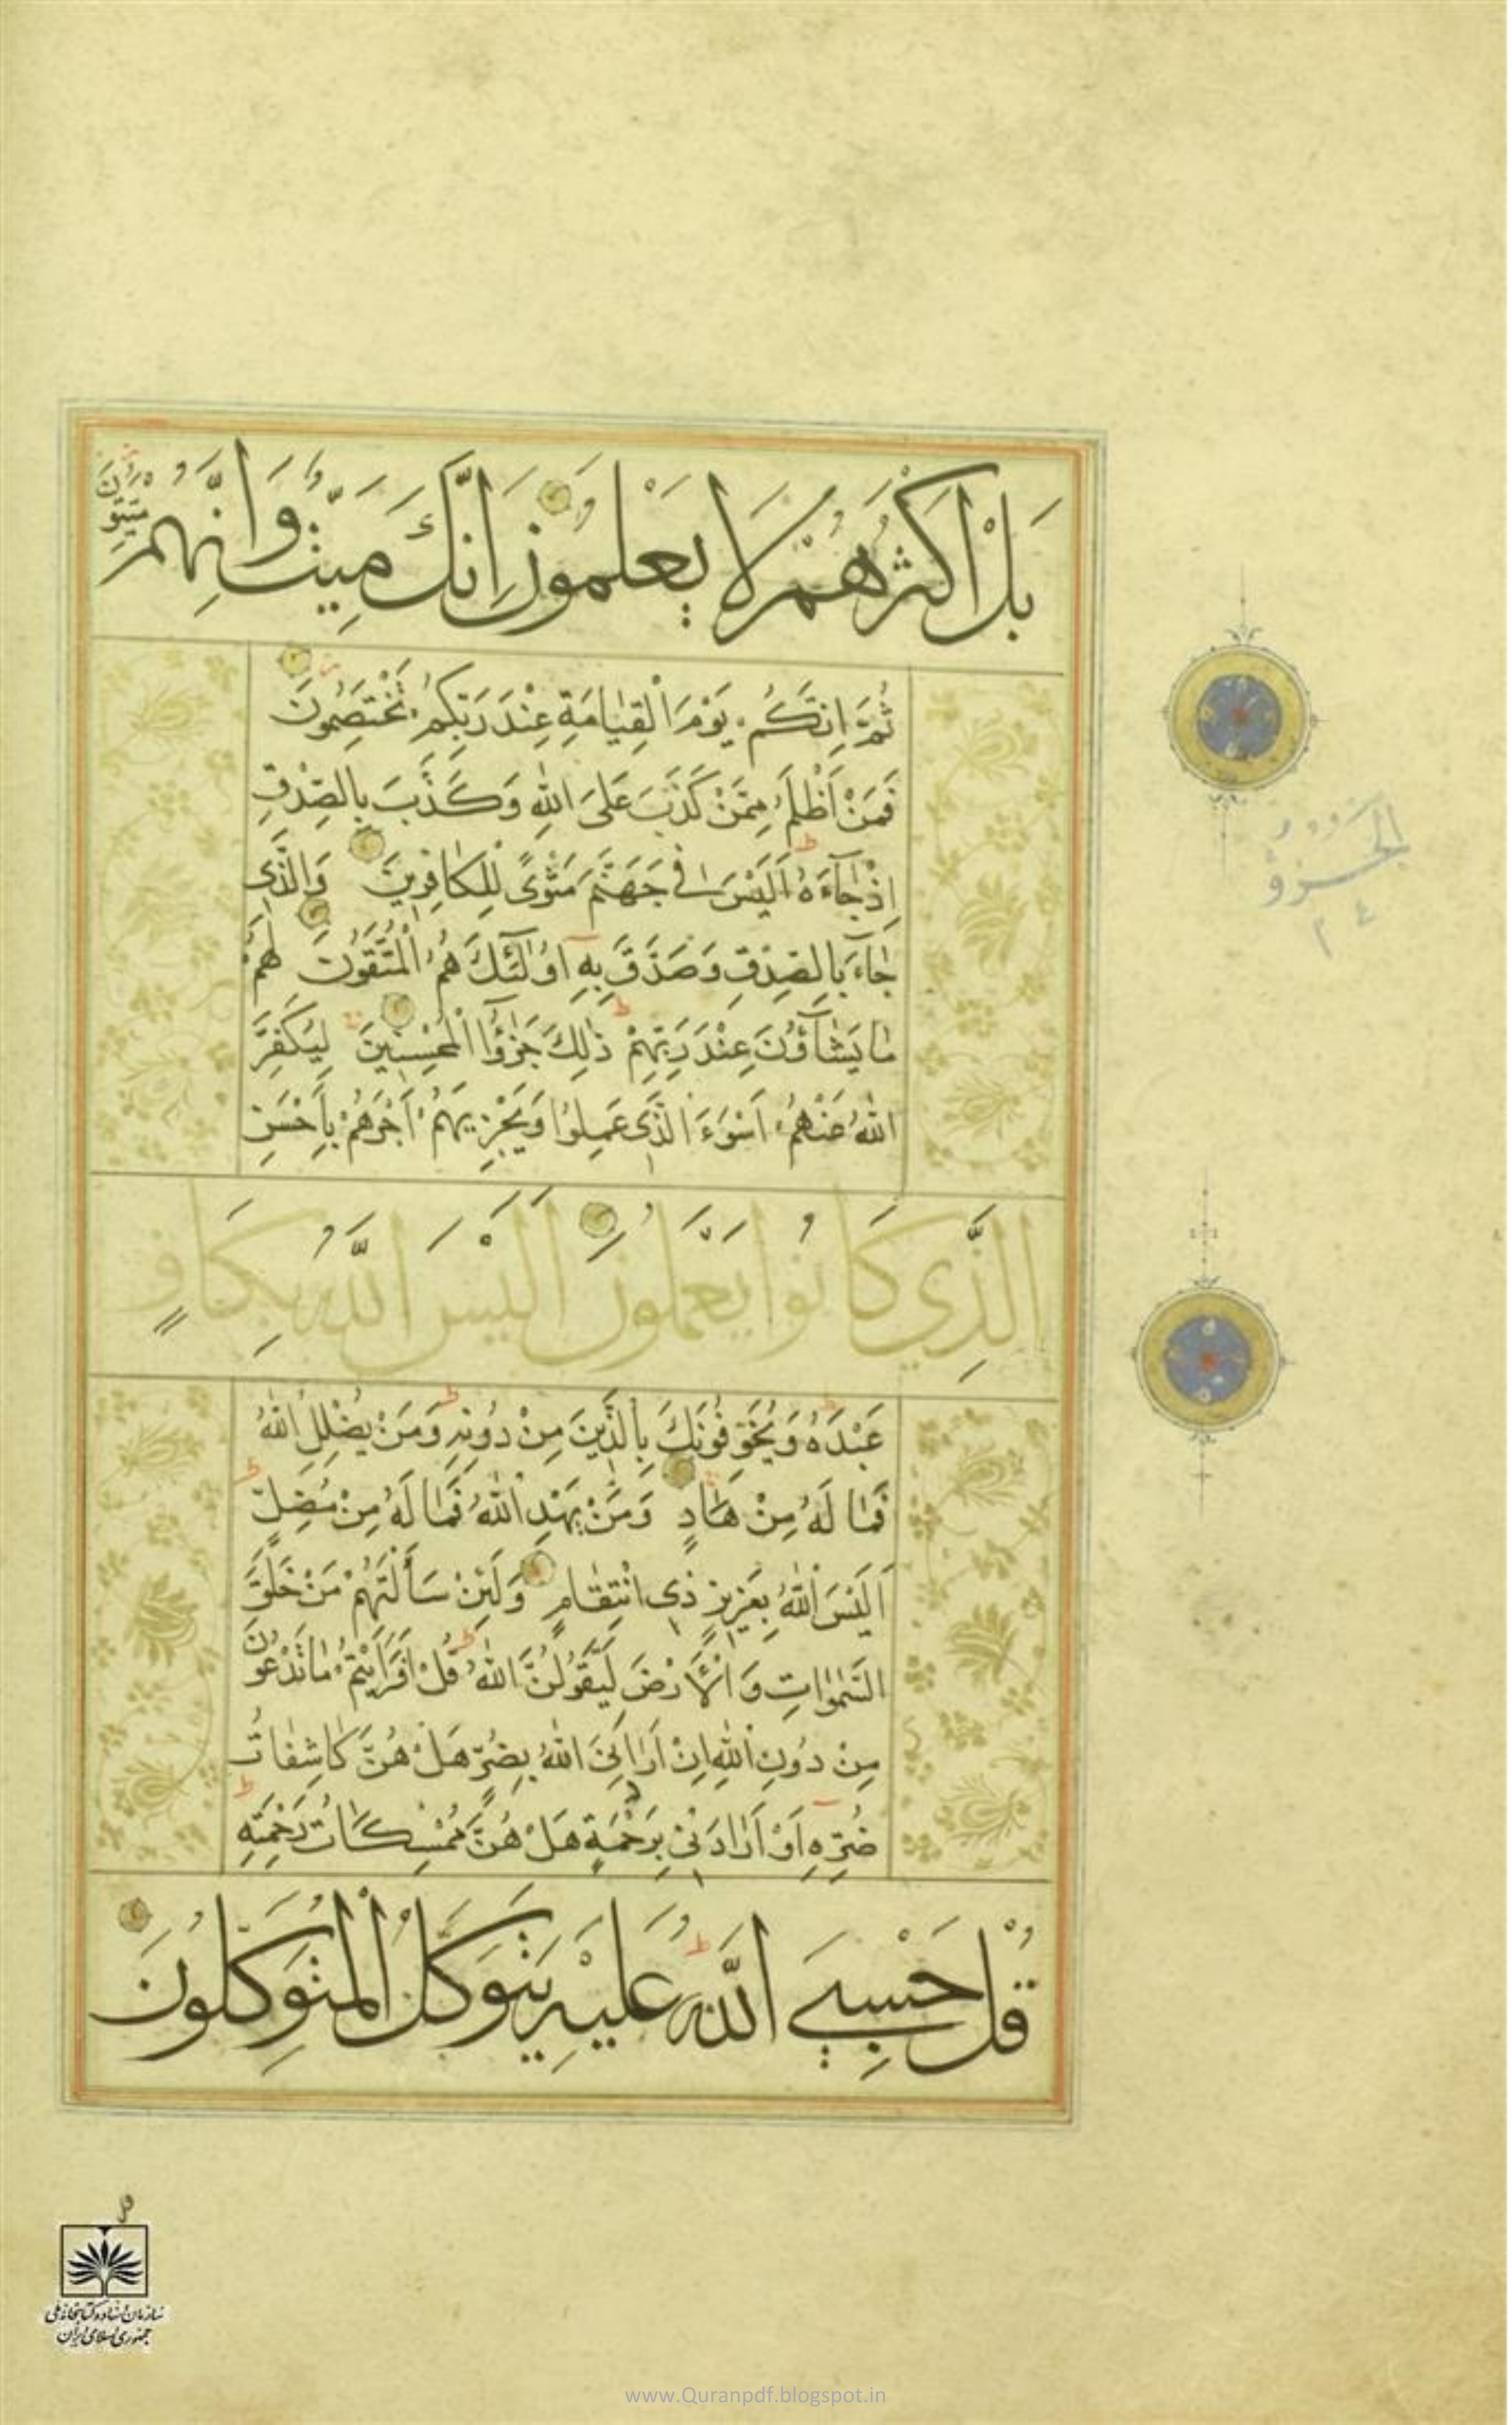 بَلْ اَكْثَرُهُمْ لَا يَعْلَمُونَ اِنَّكَ مَيِّتٌ وَاِنَّهُمْ مَيِّتُونَ
ثُمَّ اِنَّكُمْ يَوْمَ الْقِيٰامَةِ عِنْدَ رَبِّكُمْ تَخْتَصِمُونَ
فَمَنْ اَظْلَمُ مِمَّنْ كَذَبَ عَلَى اللهِ وَكَذَّبَ بِالصِّدْقِ
اِذْ جٰاۤءَهُ اَلَيْسَ فِي جَهَنَّمَ مَثْوًى لِلْكٰافِرِينَ وَالَّذِي
جٰاۤءَ بِالصِّدْقِ وَصَدَّقَ بِهِ اُولٰۤئِكَ هُمُ الْمُتَّقُونَ لَهُمْ
مٰا يَشٰاۤؤُنَ عِنْدَ رَبِّهِمْ ذٰلِكَ جَزٰۤؤُا الْمُحْسِنِينَ لِيُكَفِّرَ
اللهُ عَنْهُمْ اَسْوَءَ الَّذِي عَمِلُوا وَيَجْزِيَهُمْ اَجْرَهُمْ بِاَحْسَنِ
الَّذِي كَانُوا يَعْمَلُونَ اَلَيْسَ اللَّهُ بِكَافٍ
عَبْدَهُ وَيُخَوِّفُونَكَ بِالَّذِينَ مِنْ دُونِهِ وَمَنْ يُضْلِلِ اللهُ
فَمٰا لَهُ مِنْ هٰادٍ وَمَنْ يَهْدِ اللهُ فَمٰا لَهُ مِنْ مُضِلٍّ
اَلَيْسَ اللهُ بِعَزِيزٍ ذِي انْتِقٰامٍ وَلَئِنْ سَاَلْتَهُمْ مَنْ خَلَقَ
السَّمٰوٰاتِ وَالْاَرْضَ لَيَقُولُنَّ اللهُ قُلْ اَفَرَاَيْتُمْ مٰا تَدْعُونَ
مِنْ دُونِ اللهِ اِنْ اَرٰادَنِيَ اللهُ بِضُرٍّ هَلْ هُنَّ كٰاشِفٰاتُ
ضُرِّهِ اَوْ اَرٰادَنِي بِرَحْمَةٍ هَلْ هُنَّ مُمْسِكٰاتُ رَحْمَتِهِ
قُلْ حَسْبِيَ اللَّهُ عَلَيْهِ يَتَوَكَّلُ الْمُتَوَكِّلُونَ
الجزؤ
٢٤
قل
سازمان اسناد و کتابخانه ملی
جمهوری اسلامی ایران
www.Quranpdf.blogspot.in